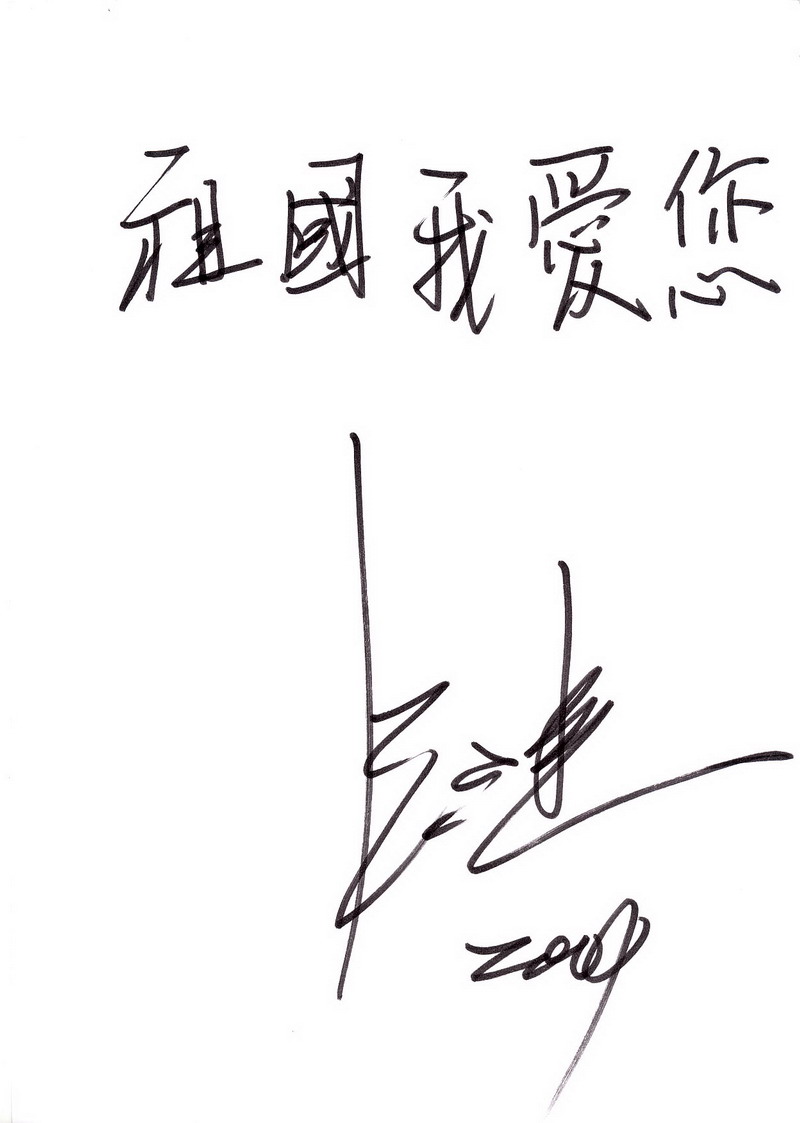 祖國我愛您
2009